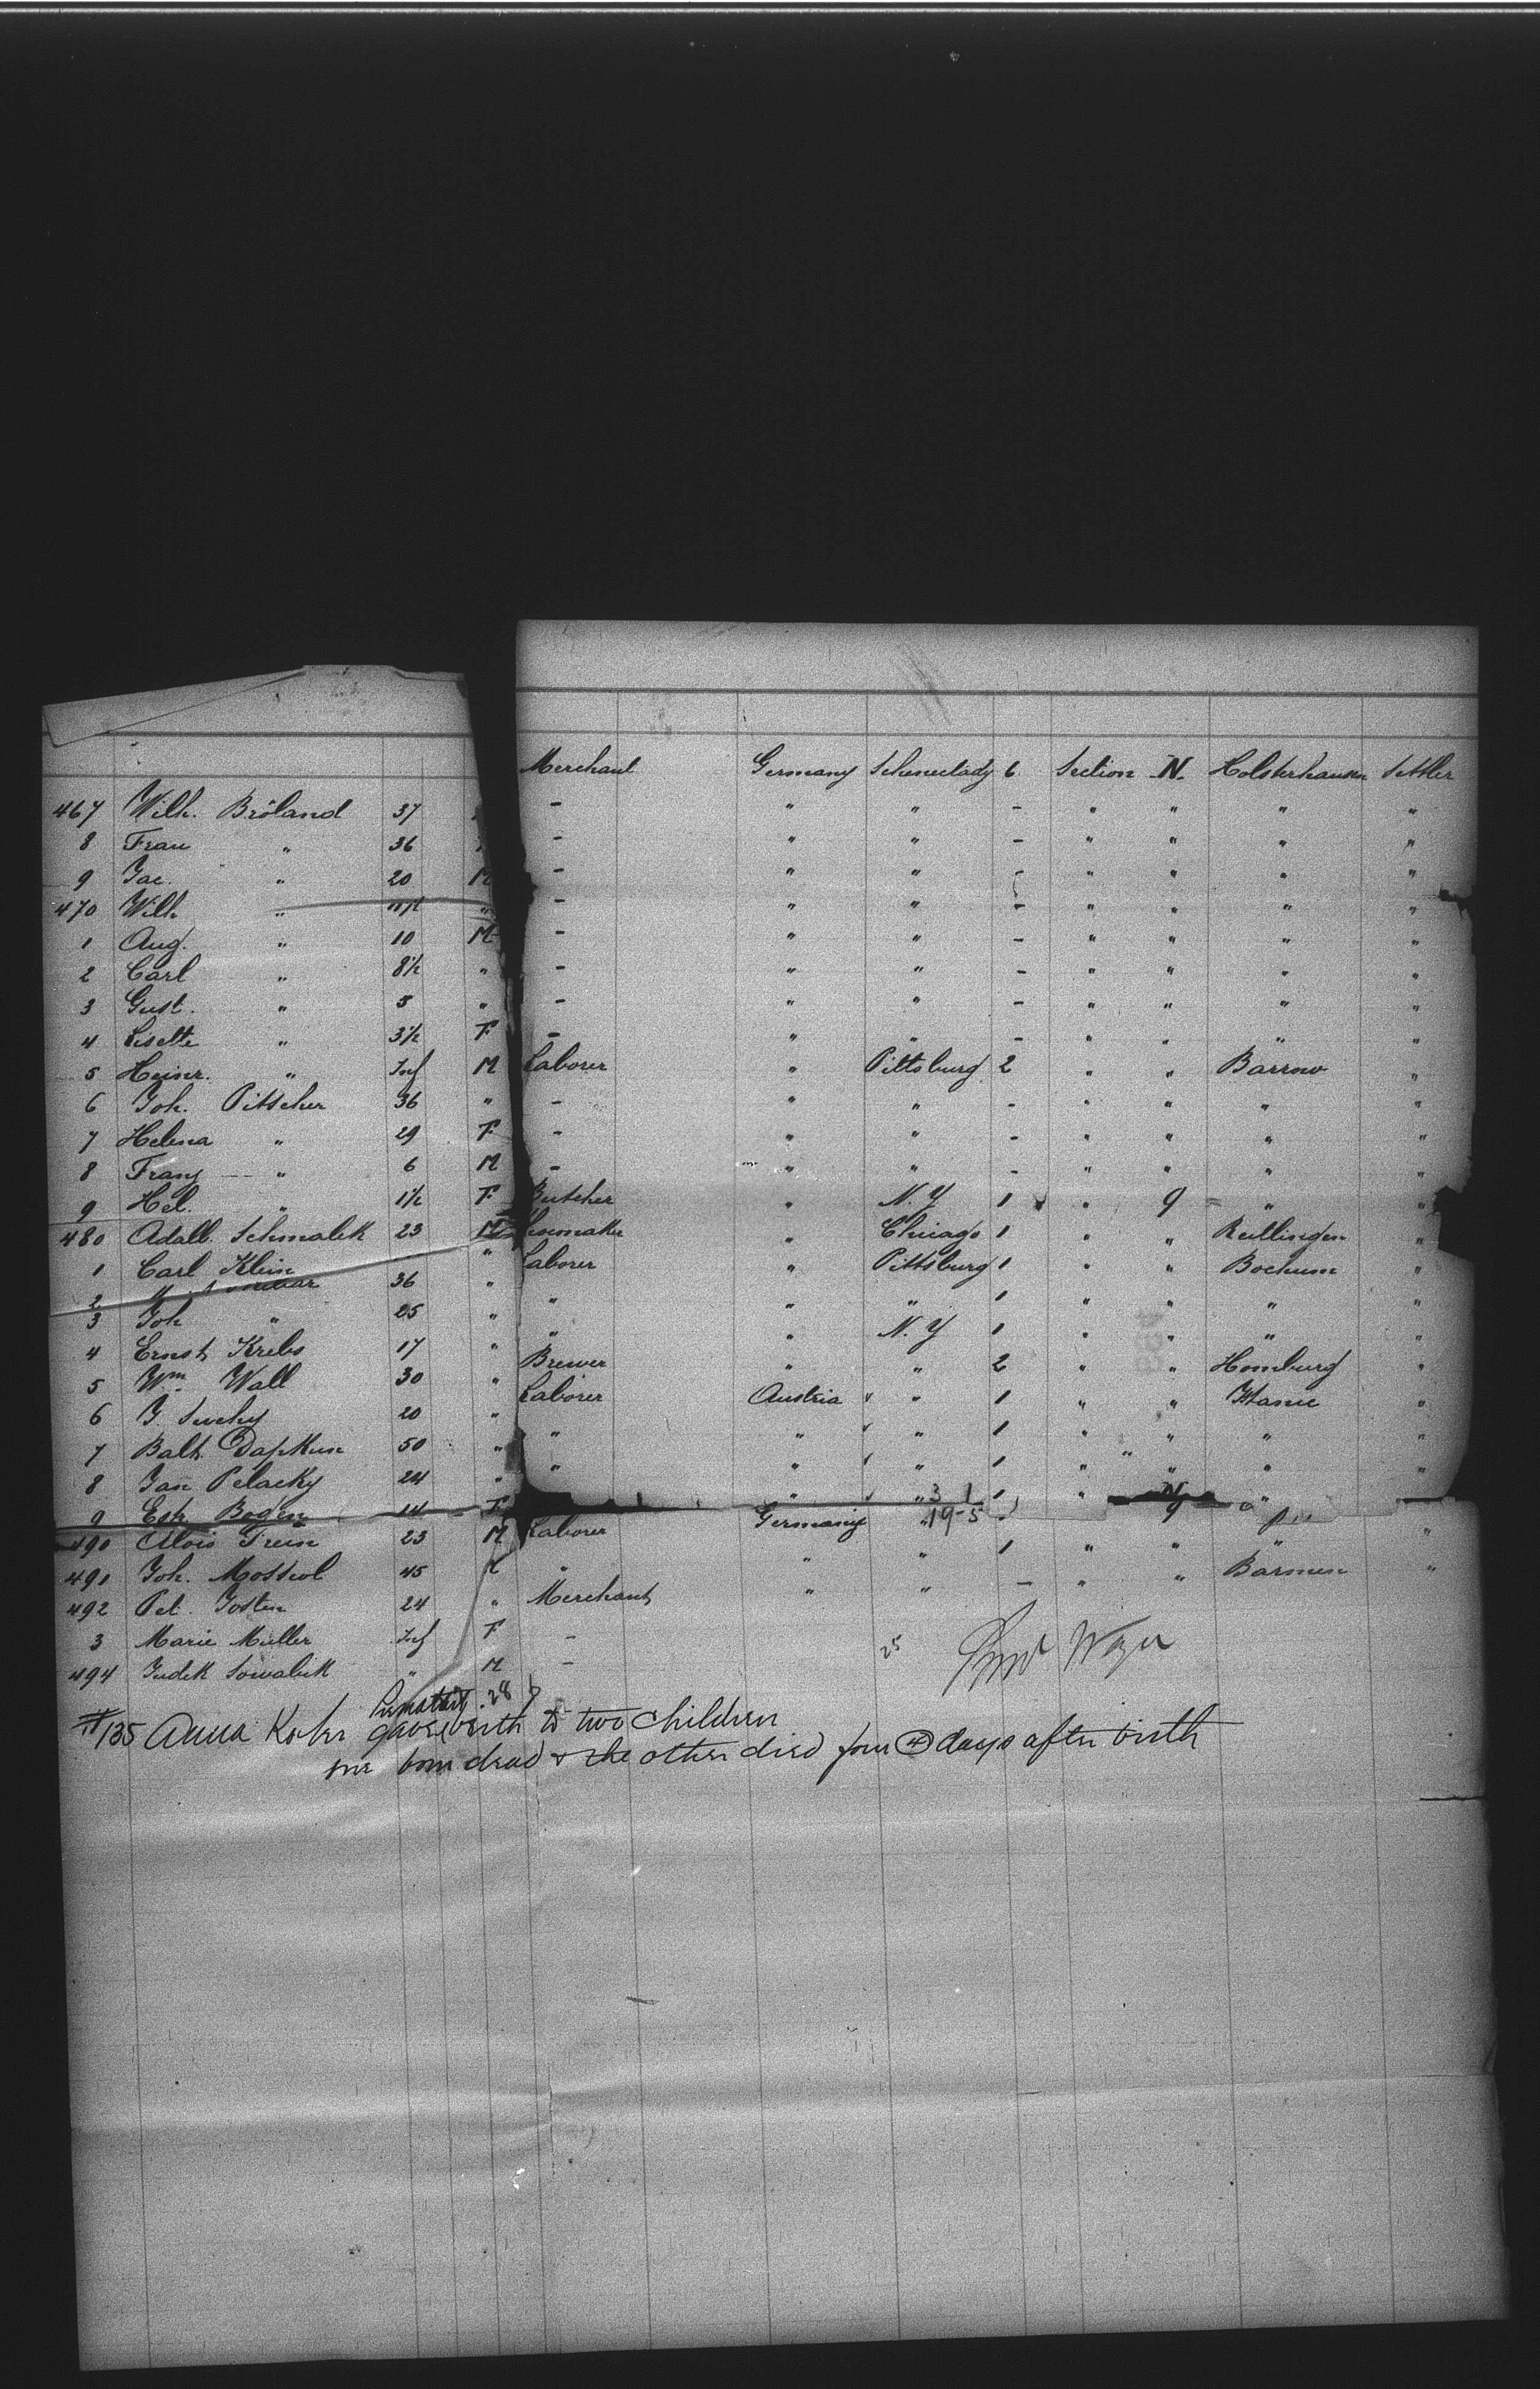 Merchant Germany Schenectady 6 Section N. Holsterhausen Settler
467 Wilh. Bröland 37 - " " - " " " "
8 Frau " 36 - " " - " " " "
9 Jac. " 20 M - " " - " " " "
470 Wilh " " - " " - " " " "
1 Aug. " 10 M - " " - " " " "
2 Carl " 8½ " - " " - " " " "
3 Gust. " 5 " - " " - " " " "
4 Lisette " 3½ F - " " - " " " "
5 Heinr. " Inf M Laborer " Pittsburg 2 " " Barrow "
6 Joh. Pitscher 36 " - " " - " " " "
7 Helena " 29 F - " " - " " " "
8 Franz " 6 M - " " - " " " "
9 Hel. " 1½ F Butcher " N.Y 1 " 9 " "
480 Adalb. Schmalek 23 M " Chicago 1 " " Reutlingen "
1 Carl Klein " Laborer " Pittsburg 1 " " Bochum "
2 36 " " " " 1 " " " "
3 Joh " 25 " " " N.Y 1 " " " "
4 Ernst Krebs 17 " Brewer " " 2 " " Homburg "
5 Wm. Wall 30 " Laborer Austria " 1 " " "
6 J. Suchy 20 " " " " 1 " " " "
7 Balt. 50 " " " " 1 " " " "
8 Jan Pelacky 24 " " " 3 1 1 " N "
9 Est. Bogen 14 F Germany " 19-5 9
490 Alois 23 M Laborer " " 1 " " " "
491 Joh. 45 " " " - " " Barmen "
492 Pet. Josten 24 " Merchant
3 Marie Müller Inf F - 25
494 " M -
28
#135 Anna gave birth to two children
one born dead & the other died four (4) days after birth